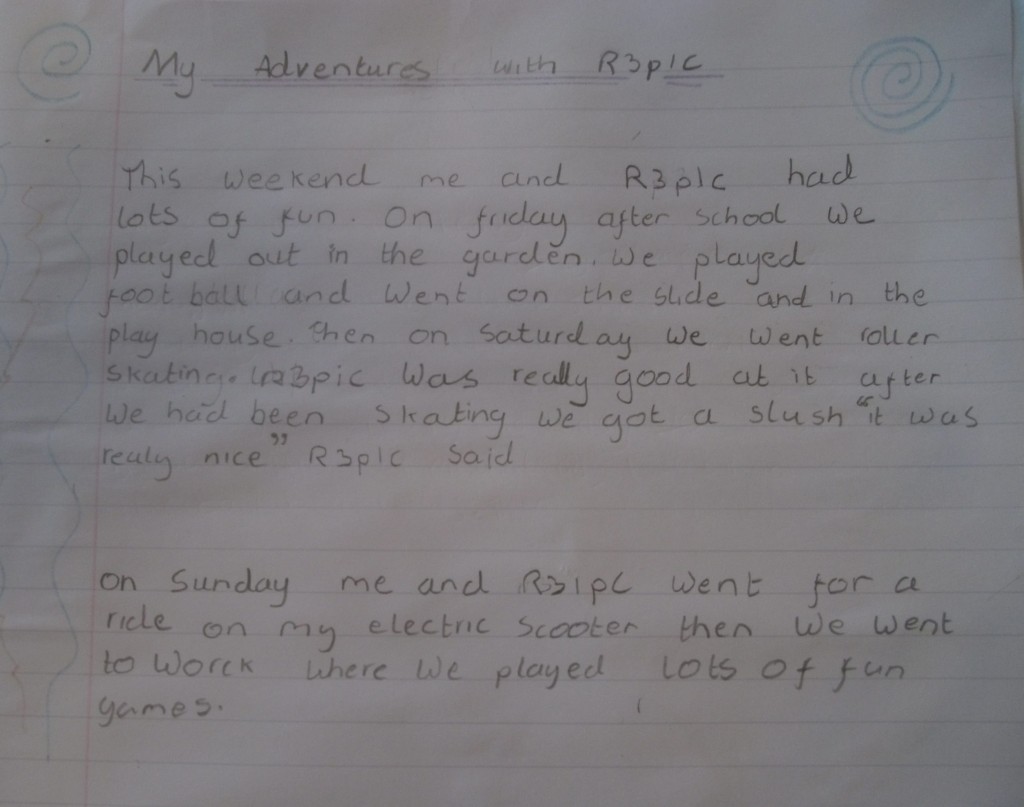 My Adventures with R3p1c
This weekend me and R3p1c had
lots of fun. On friday after school we
played out in the garden. We played
foot ball and went on the slide and in the
play house. then on saturday we went roller
skating. R3pic was really good at it after
we had been skating we got a slush "it was
realy nice" R3p1c said
on Sunday me and R31pc went for a
ride on my electric scooter then we went
to worck where we played lots of fun
games.